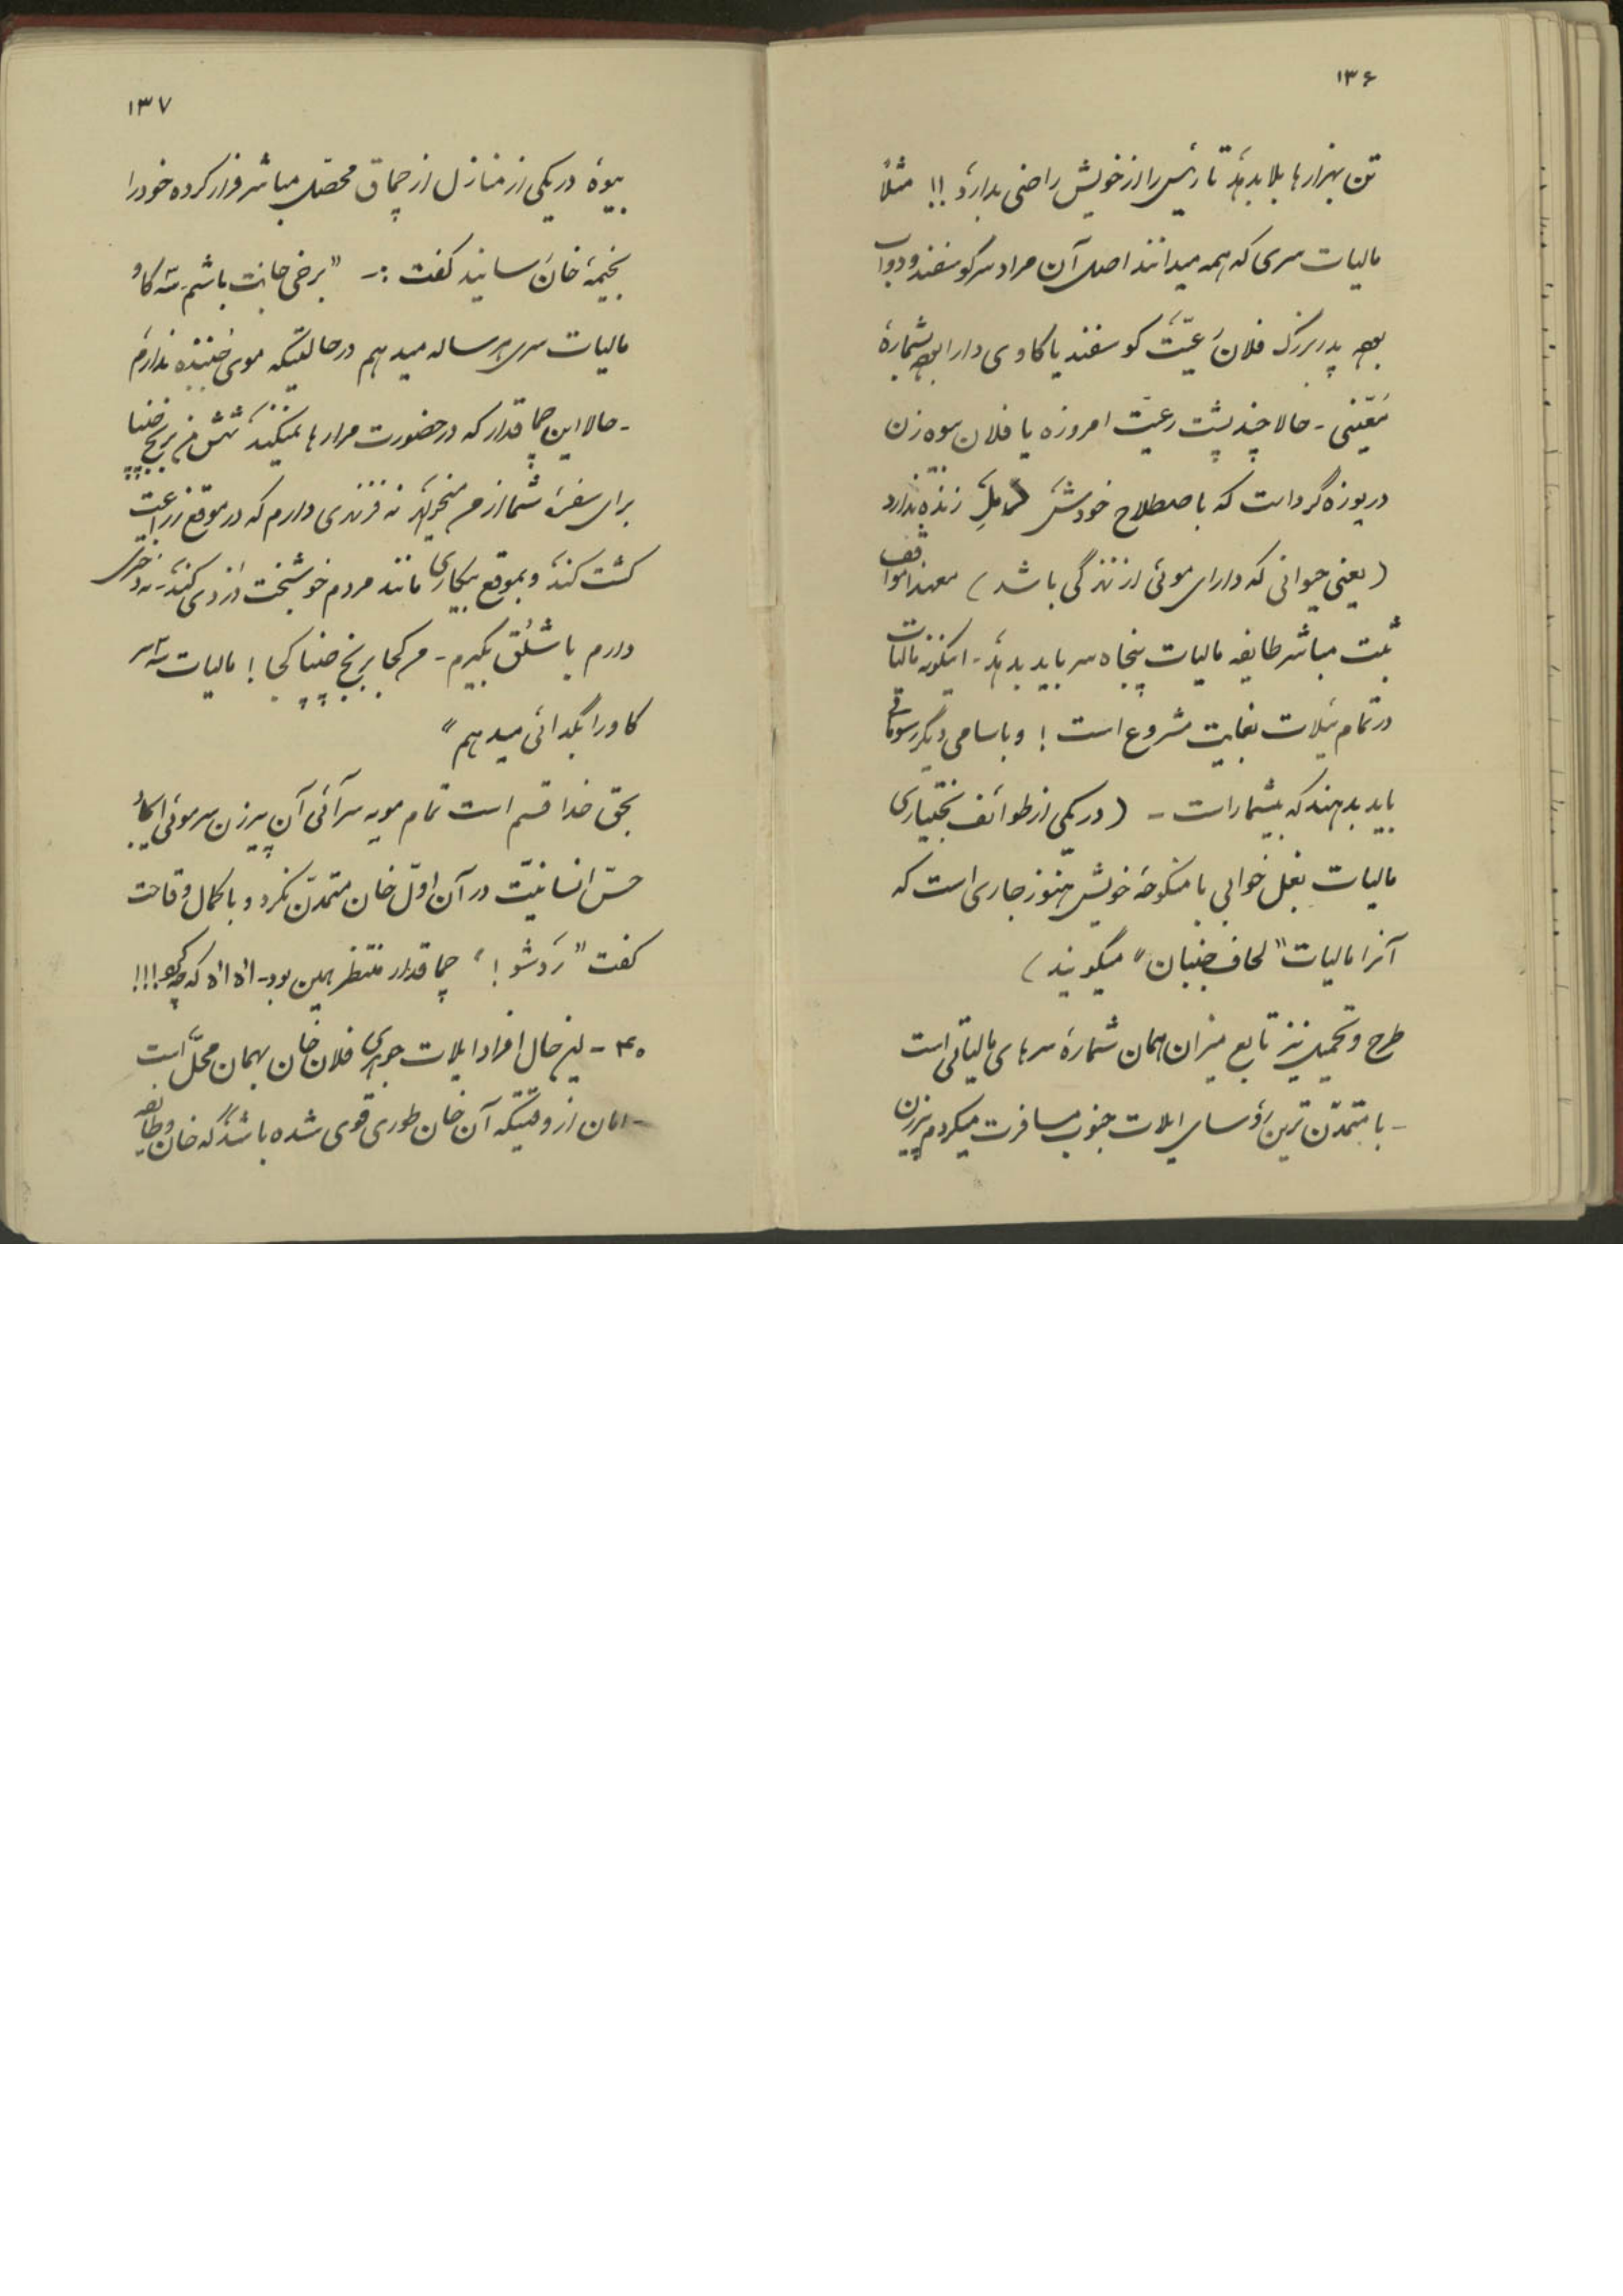 ۱۳۶
تن بهزارها بلا بدهد تا رئیس را از خویش راضی بدارد !! مثلاً
مالیات سری که همه میدانند اصل آن مراد سر گوسفند و دواب
بوده پدربزرگ فلان رعیّت گوسفند یا گاوی دارا بوده بشمارهٔ
معیّنی - حالا چند پشت رعیّت امروزه یا فلان بیوه زن
دریوزه گرد است که باصطلاح خودش زنده ندارد
(یعنی حیوانی که دارای موئی از زندگی باشد) معهذا موافق
ثبت مباشر طایفه مالیات پنجاه سر باید بدهد - اینگونه مالیات
در تمام ئیلات بغایت مشروع است ! و باسامی دیگر رسوماتی
باید بدهند که بیشمار است - (در یکی از طوائف بختیاری
مالیات بغل خوابی با منکوحهٔ خویش هنوز جاری است که
آنرا مالیات "لحاف جنبان" میگویند)
طرح و تحمیل نیز تابع میزان همان شمارهٔ سرهای مالیاتی است
- با متمدّن ترین رؤسای ایلات جنوب مسافرت میکردم پیرزن
۱۳۷
بیوهٔ در یکی از منازل از چماق محصّل مباشر فرار کرده خود را
بخیمهٔ خان رسانید گفت :- "برخی جانت باشم سه گاو
مالیات سری هر ساله میدهم در حالتیکه موی جنبنده ندارم
- حالا این چماقدار که در حضورت مرا رها نمیکند شش من برنج چنپا
برای سفرهٔ شما از من میخواهد نه فرزندی دارم که در موقع زراعت
کشت کند و بموقع بیکاری مانند مردم خوشبخت دزدی کند - نه دختری
دارم یا شلّق بگیرم - من کجا برنج چنپا کجا ! مالیات سه سر
گاو را بگدائی میدهم"
بحق خدا قسم است تمام مویه سرآئی آن پیرزن سر موئی ایجاد
حسّ انسانیّت در آن اوّل خان متمدّن نکرد و با کمال وقاحت
گفت "رد شو !" چماقدار منتظر همین بود - اه اه که چه کرد !!!
۴۰ - لیز خال افراد ایلات فلان خان بهمان محلّ است
- امان از وقتیکه آن خان طوری قوی شده باشد که خان و طایفه